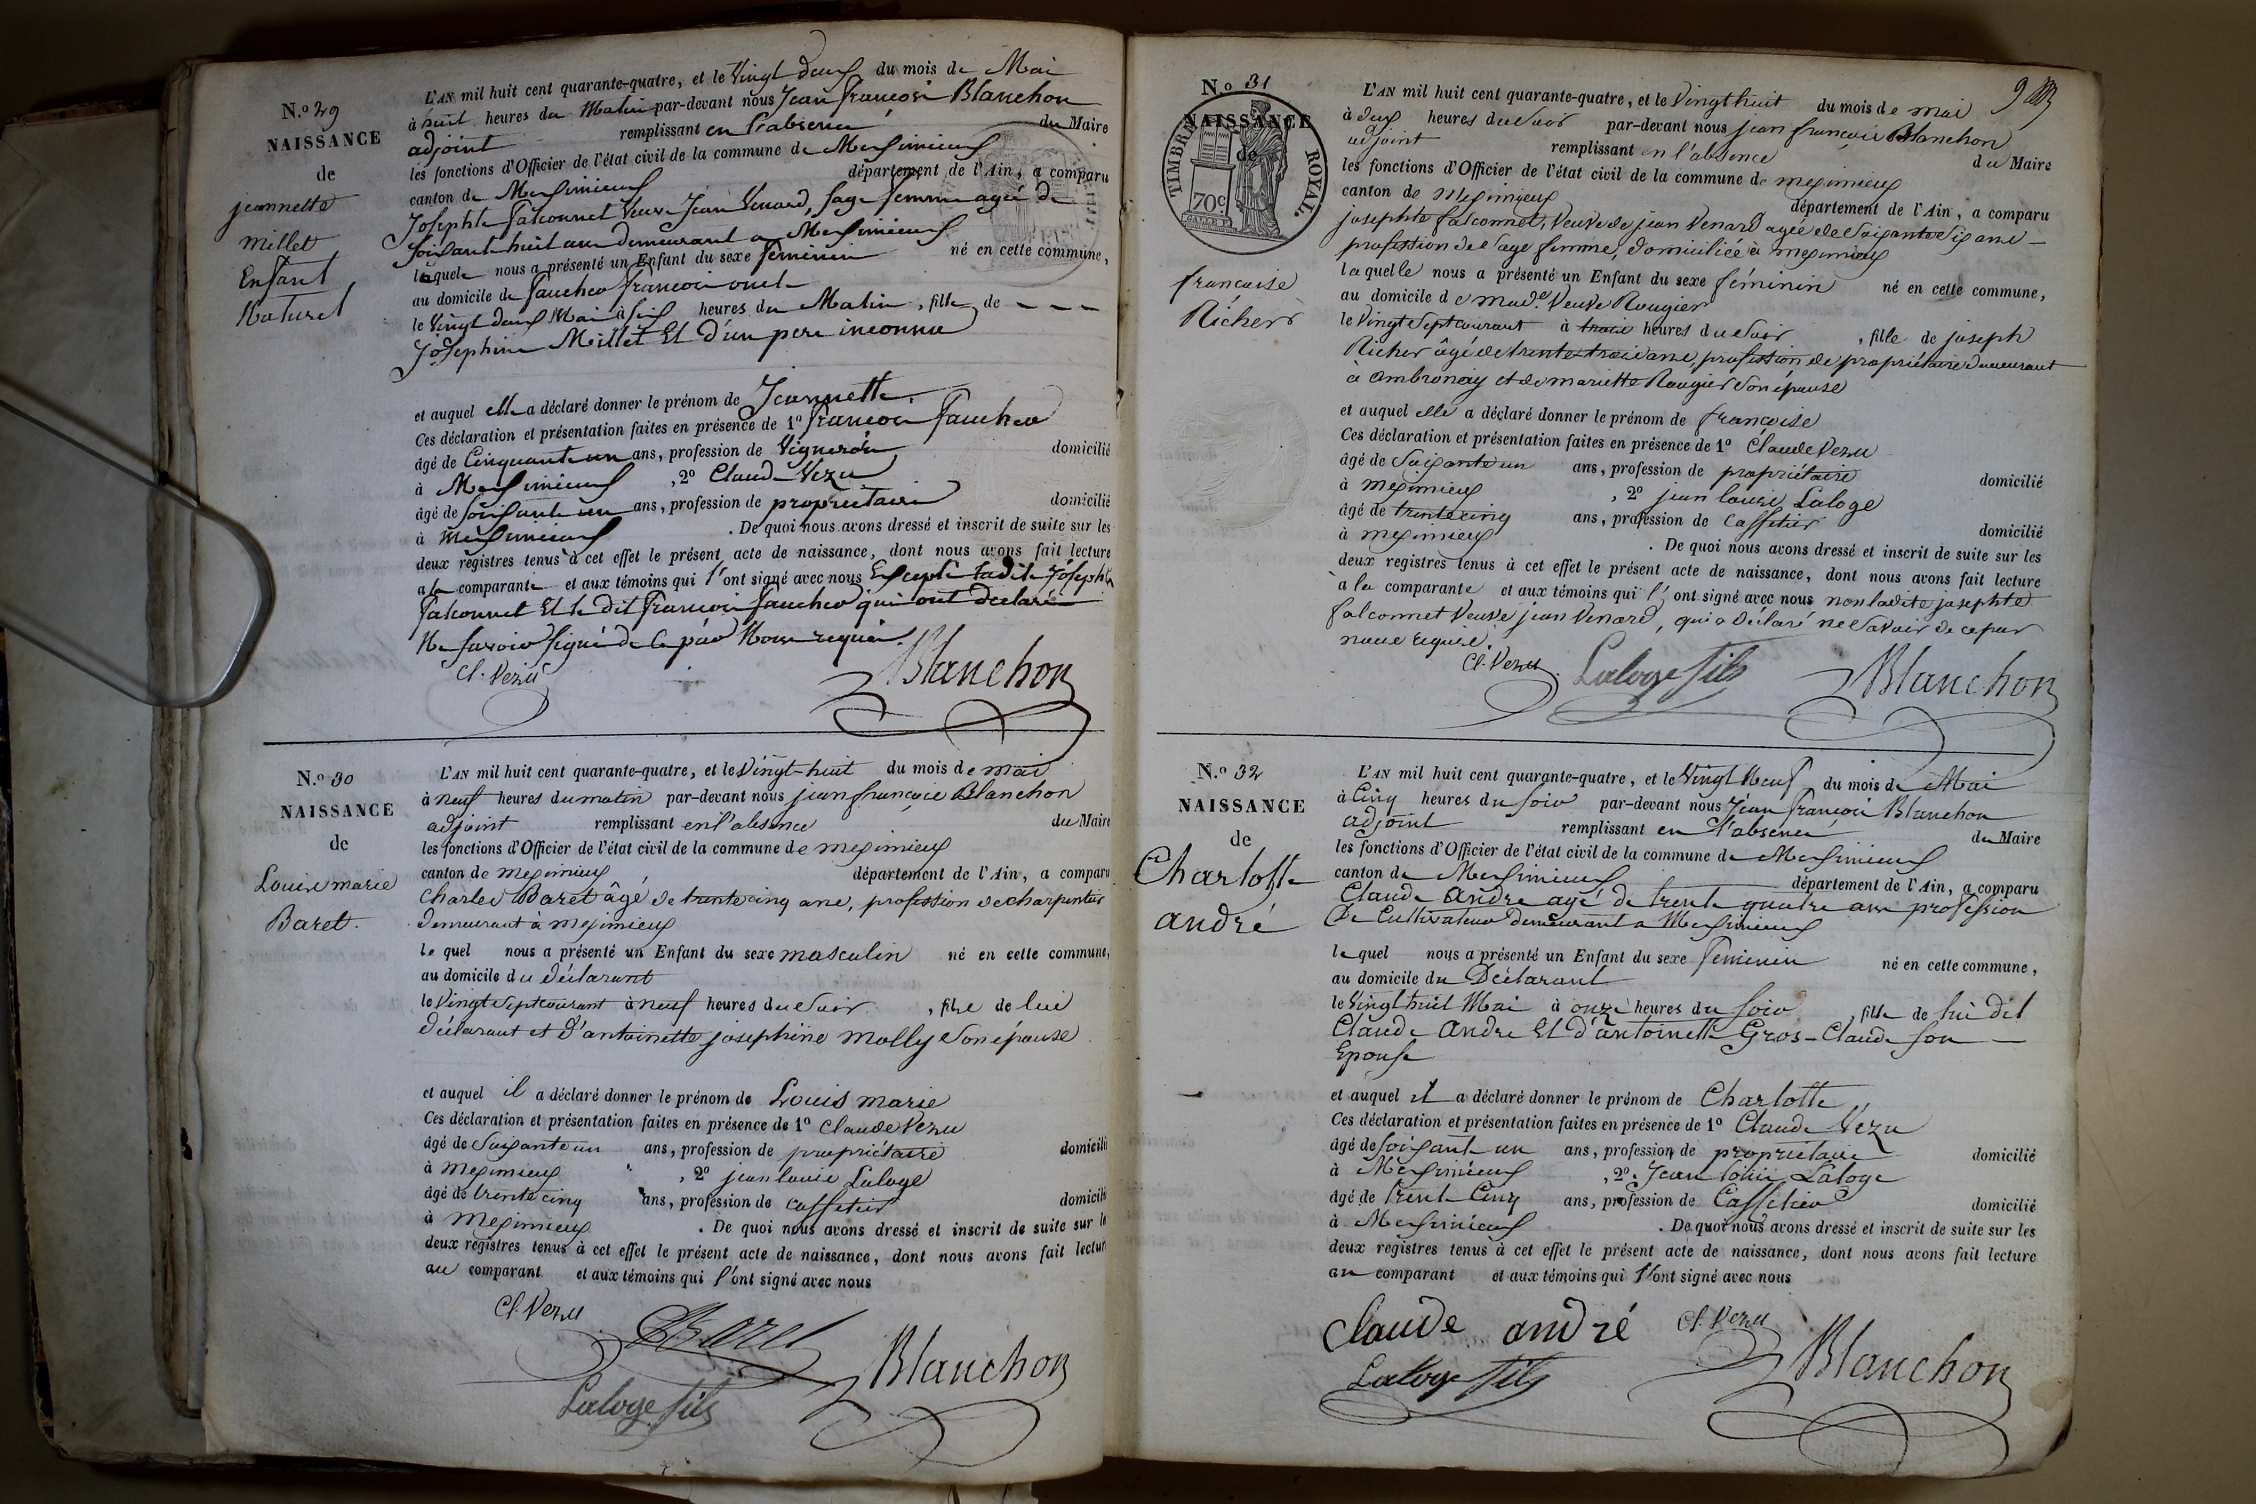 N.o 29
NAISSANCE
de
jeannette
millet
Enfant
Naturel
L'AN mil huit cent quarante-quatre, et le Vingt deux du mois de Mai
à huit heures du Matin par-devant nous Jean françois Blanchon
adjoint remplissant en l'absence du Maire
les fonctions d'Officier de l'état civil de la commune de Meximieux
canton de Meximieux département de l'Ain, a comparu
Josephte falconnet Veuve Jean Venard, sage femme agée de
Soixante huit ans demeurant a Meximieux
laquelle nous a présenté un Enfant du sexe feminin né en cette commune,
au domicile de faucheo françois oncle
le Vingt deux Mai à six heures du Matin, fille de - - -
Josephine Millet Et d'un pere inconnu
et auquel elle a déclaré donner le prénom de Jeannette
Ces déclaration et présentation faites en présence de 1o françois faucheo
âgé de Cinquante un ans, profession de Vigneron domicilié
à Meximieux, 2o Claude Vezu
âgé de Soixante un ans, profession de proprietaire domicilié
à Meximieux. De quoi nous avons dressé et inscrit de suite sur les
deux registres tenus à cet effet le présent acte de naissance, dont nous avons fait lecture
a la comparante et aux témoins qui l'ont signé avec nous Excepté ladite Josephte
falconnet Et le dit françois faucheo qui ont declaré
Ne savoir signé de Ce par Nous requis.
Cl. Vezu
Blanchon
N.o 30
NAISSANCE
de
Louis marie
Baret.
L'AN mil huit cent quarante-quatre, et le Vingt-huit du mois de mai
à neuf heures du matin par-devant nous jean françois Blanchon
adjoint remplissant en l'absence du Maire
les fonctions d'Officier de l'état civil de la commune de meximieux
canton de meximieux département de l'Ain, a comparu
Charles Baret âgé de trente cinq ans, profession de charpentier
demeurant à meximieux
le quel nous a présenté un Enfant du sexe masculin né en cette commune,
au domicile du déclarant
le Vingt sept courant à neuf heures du soir, fils de lui
déclarant et d'antoinette josephine molly son épouse
et auquel il a déclaré donner le prénom de Louis marie
Ces déclaration et présentation faites en présence de 1o Claude Vezu
âgé de Soixante un ans, profession de propriétaire domicilié
à meximieux, 2o jean louis Laloge
âgé de trente cinq ans, profession de caffetier domicilié
à meximieux. De quoi nous avons dressé et inscrit de suite sur les
deux registres tenus à cet effet le présent acte de naissance, dont nous avons fait lecture
au comparant et aux témoins qui l'ont signé avec nous
Cl. Vezu
Baret
Blanchon
Laloge fils
9
N.o 31
NAISSANCE
de
TIMBRE ROYAL.
70c
françoise
Richer
L'AN mil huit cent quarante-quatre, et le Vingt huit du mois de mai
à deux heures du soir par-devant nous jean françois Blanchon
adjoint remplissant en l'absence du Maire
les fonctions d'Officier de l'état civil de la commune de meximieux
canton de meximieux département de l'Ain, a comparu
josephte falconnet, Veuve de jean Venard agée de Soixante six ans
profession de sage femme, domiciliée à meximieux
la quelle nous a présenté un Enfant du sexe féminin né en cette commune,
au domicile de made Veuve Rougier
le Vingt sept courant à trois heures du soir, fille de joseph
Richer âgé de trente trois ans, profession de propriétaire demeurant
a ambronay et de mariette Rougier son épouse
et auquel elle a déclaré donner le prénom de françoise
Ces déclaration et présentation faites en présence de 1o Claude Vezu
âgé de Soixante un ans, profession de propriétaire domicilié
à meximieux, 2o jean louis Laloge
âgé de trente cinq ans, profession de caffetier domicilié
à meximieux. De quoi nous avons dressé et inscrit de suite sur les
deux registres tenus à cet effet le présent acte de naissance, dont nous avons fait lecture
à la comparante et aux témoins qui l'ont signé avec nous non ladite josephte
falconnet Veuve jean Venard, qui a déclaré ne savoir de ce par
nous requise.
Cl. Vezu
Laloge fils
Blanchon
N.o 32
NAISSANCE
de
Charlotte
andré
L'AN mil huit cent quarante-quatre, et le Vingt Neuf du mois de Mai
à Cinq heures du soir par-devant nous Jean françois Blanchon
adjoint remplissant en l'absence du Maire
les fonctions d'Officier de l'état civil de la commune de Meximieux
canton de Meximieux département de l'Ain, a comparu
Claude andre agé de trente quatre ans profession
De Cultivateur demeurant a Meximieux
le quel nous a présenté un Enfant du sexe feminin né en cette commune,
au domicile du Déclarant
le Vingt huit Mai à onze heures du soir, fille de lui dit
Claude andre Et d'antoinette Gros-Claude son
Epouse
et auquel il a déclaré donner le prénom de Charlotte
Ces déclaration et présentation faites en présence de 1o Claude Vezu
âgé de soixante un ans, profession de proprietaire domicilié
à Meximieux, 2o. Jean louis Laloge
âgé de trente Cinq ans, profession de Caffetier domicilié
à Meximieux. De quoi nous avons dressé et inscrit de suite sur les
deux registres tenus à cet effet le présent acte de naissance, dont nous avons fait lecture
au comparant et aux témoins qui l'ont signé avec nous
Claude andré
Cl. Vezu
Laloge fils
Blanchon